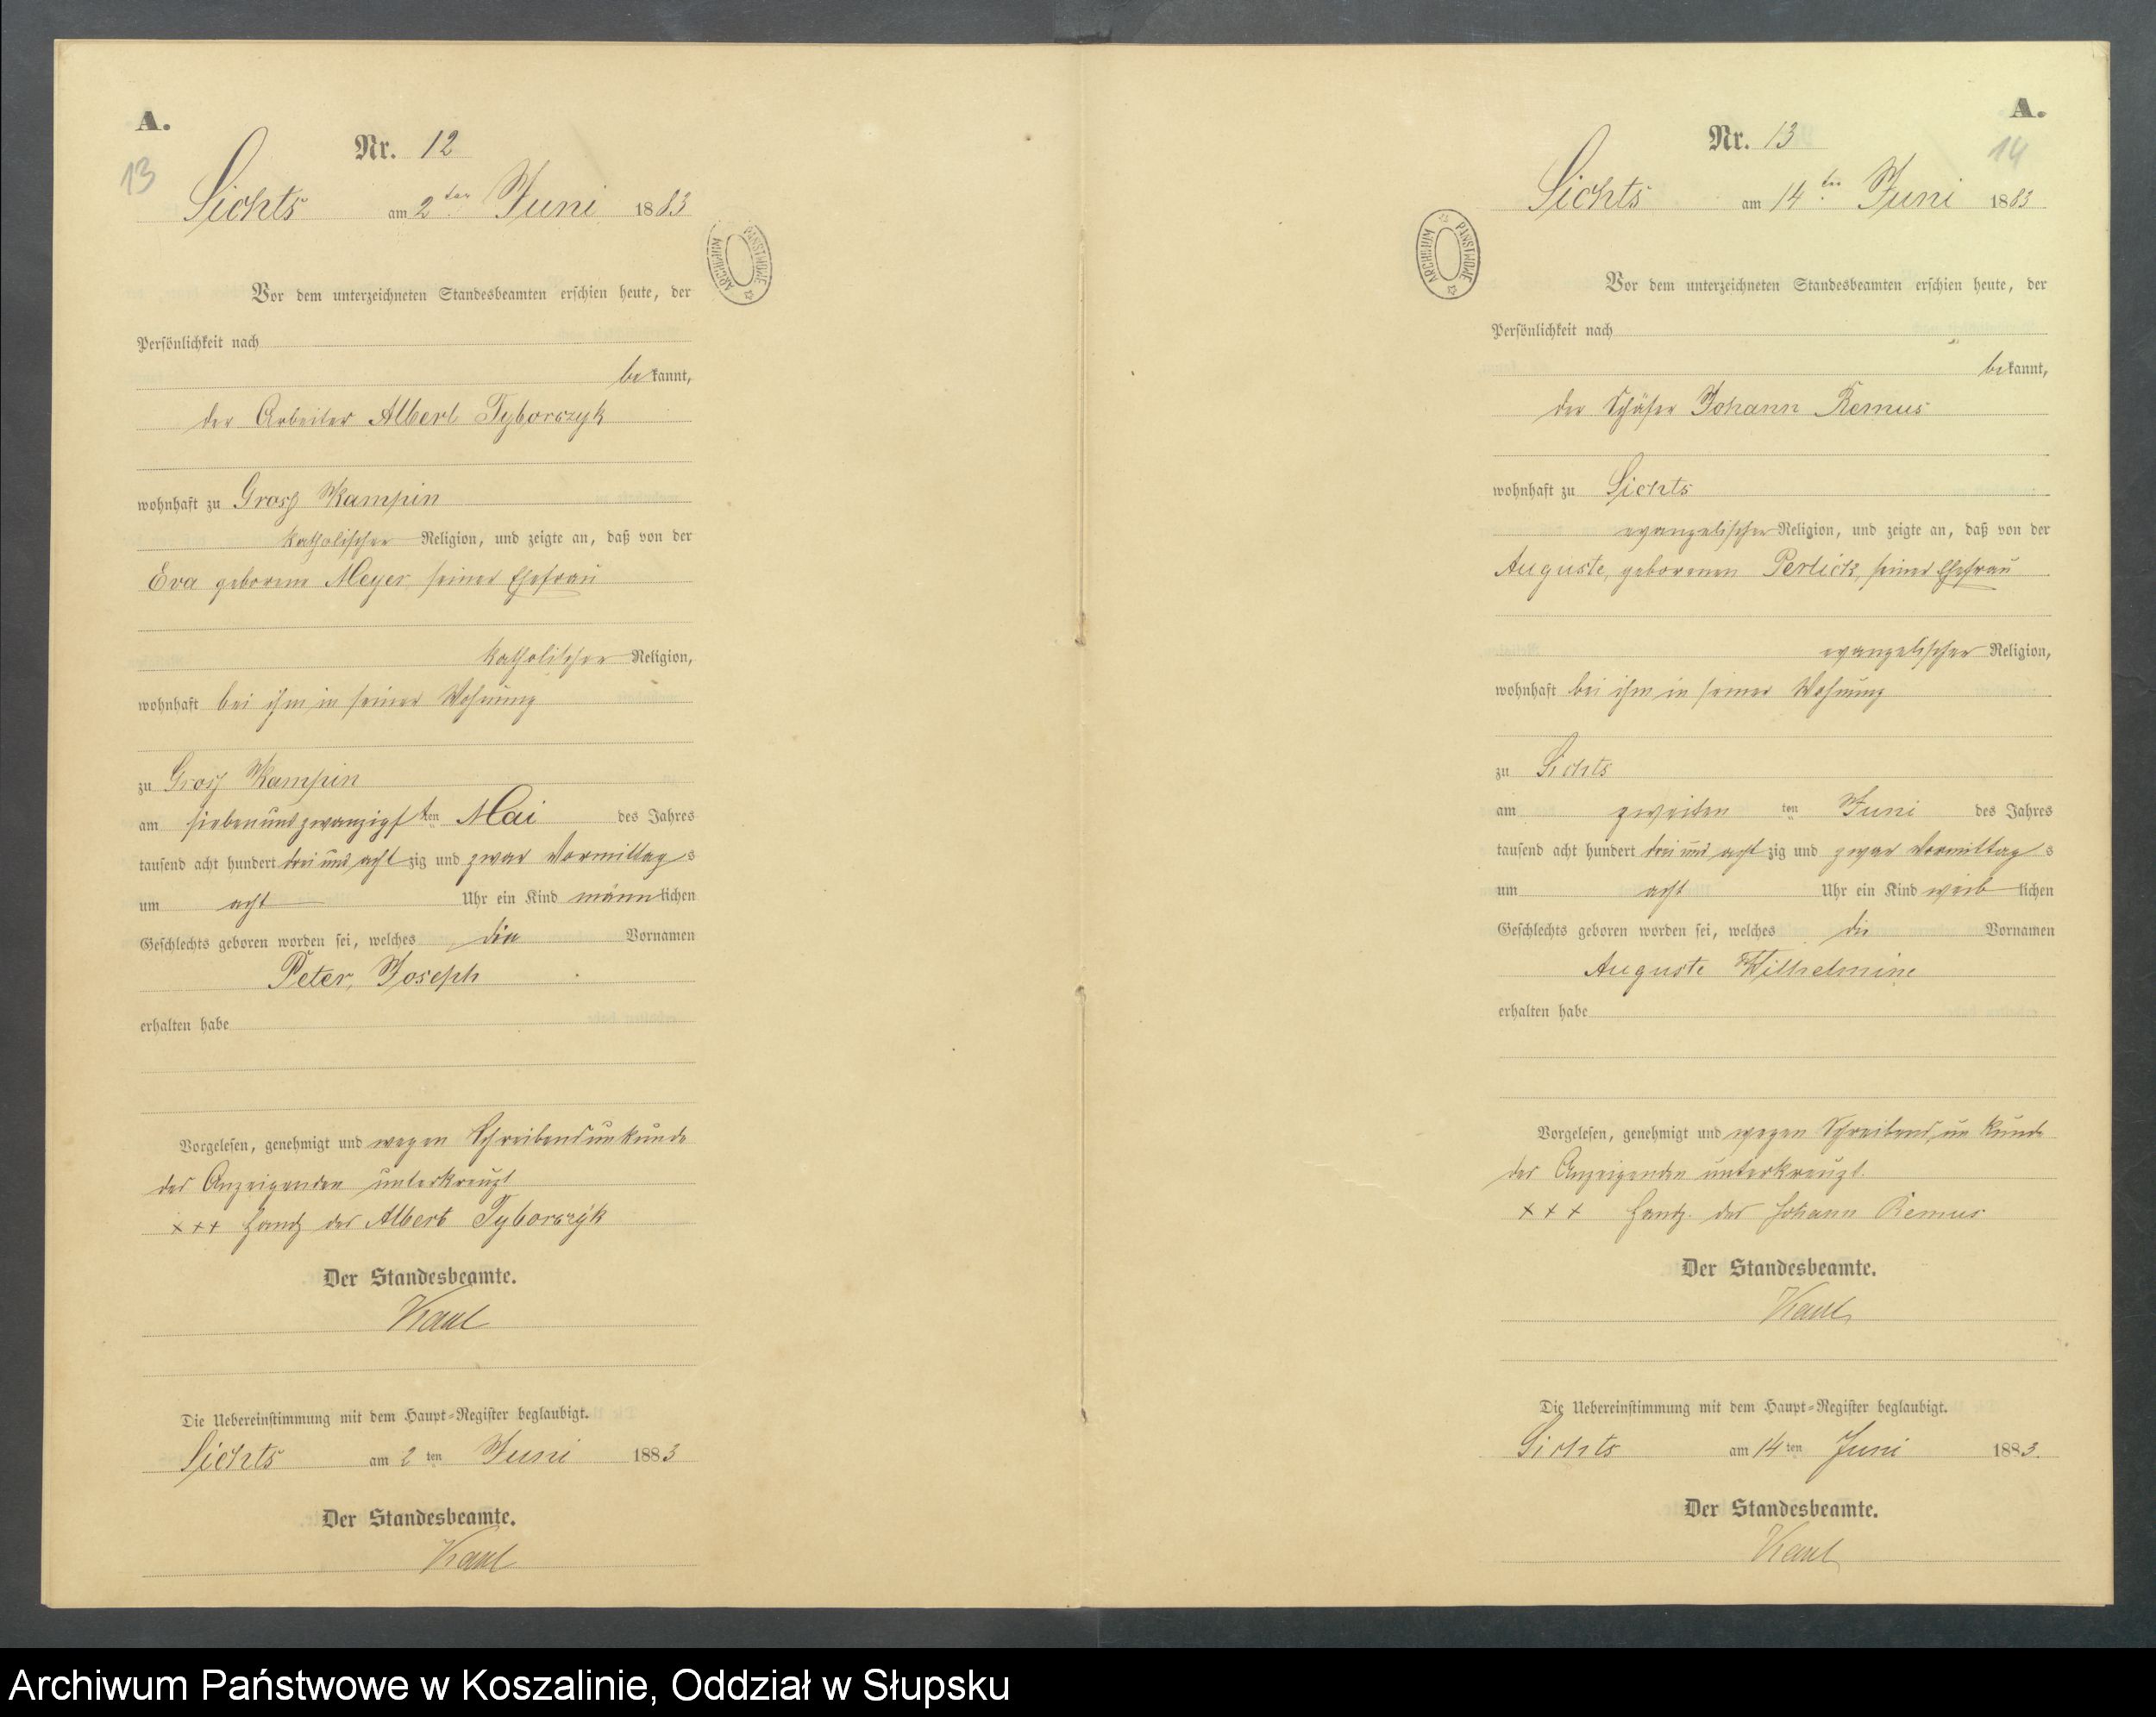 A.
Nr. 12
13
Sichts am 2ten Juni 1883
ARCHIWUM PAŃSTWOWE
Vor dem unterzeichneten Standesbeamten erschien heute, der
Persönlichkeit nach
bekannt,
der Arbeiter Albert Tyborczyk
wohnhaft zu Gross Wampin
katholischer Religion, und zeigte an, daß von der
Eva geborene Meyer seiner Ehefrau
katholischer Religion,
wohnhaft bei ihm in seiner Wohnung
zu Gross Wampin
am siebenundzwanzigsten Mai des Jahres
tausend acht hundert drei und achtzig und zwar Vormittags
um acht Uhr ein Kind männlichen
Geschlechts geboren worden sei, welches die Vornamen
Peter, Joseph
erhalten habe
Vorgelesen, genehmigt und wegen Schreibensunkunde
des Anzeigenden unterkreuzt
+++ Handz des Albert Tyborczyk
Der Standesbeamte.
Kaul
Die Uebereinstimmung mit dem Haupt-Register beglaubigt.
Sichts am 2ten Juni 1883
Der Standesbeamte.
Kaul
A.
Nr. 13
14
Sichts am 14ten Juni 1883
ARCHIWUM PAŃSTWOWE
Vor dem unterzeichneten Standesbeamten erschien heute, der
Persönlichkeit nach
bekannt,
der Schäfer Johann Remus
wohnhaft zu Sichts
evangelischer Religion, und zeigte an, daß von der
Auguste, geborenen Perlick, seiner Ehefrau
evangelischer Religion,
wohnhaft bei ihm in seiner Wohnung
zu Sichts
am zweiten ten Juni des Jahres
tausend acht hundert drei und achtzig und zwar Vormittags
um acht Uhr ein Kind weiblichen
Geschlechts geboren worden sei, welches die Vornamen
Auguste Wilhelmine
erhalten habe
Vorgelesen, genehmigt und wegen Schreibensunkunde
des Anzeigenden unterkreuzt.
+++ Handz. des Johann Remus
Der Standesbeamte.
Kaul
Die Uebereinstimmung mit dem Haupt-Register beglaubigt.
Sichts am 14ten Juni 1883.
Der Standesbeamte.
Kaul
Archiwum Państwowe w Koszalinie, Oddział w Słupsku